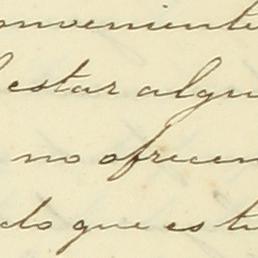 onveniente
estar algu
no ofrecen
do que estu